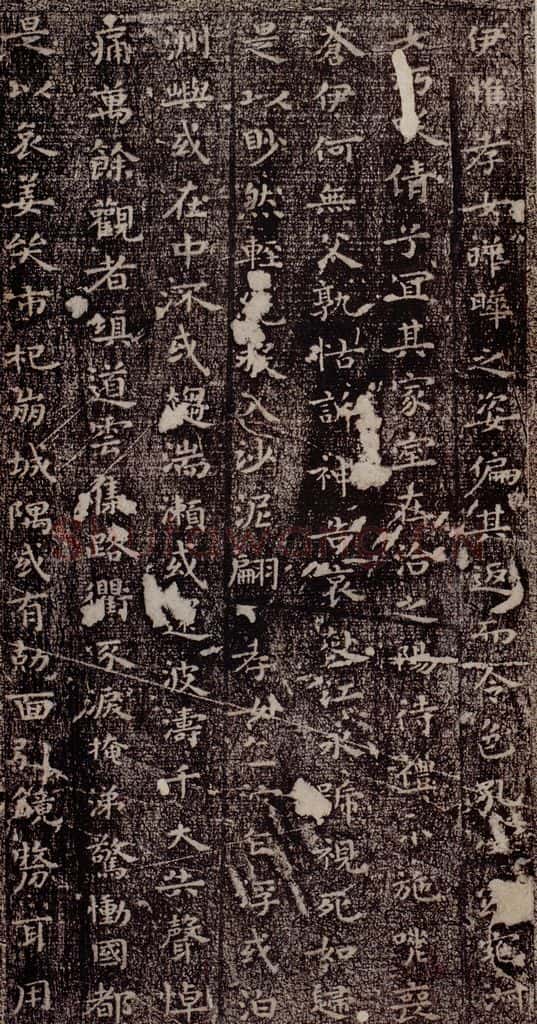 伊惟孝女曄曄之姿偏其返而令色孔
倩兮宜其家室在洽之陽待禮未施嗟喪
蒼伊何無父孰怙訴神告哀赴江永號視死如歸
是以眇然輕絕投入沙泥翩孝女乍浮或泊
洲嶼或在中流或趨湍瀨或還波濤千夫失聲悼
痛萬餘觀者填道雲集路衢流淚掩涕驚慟國都
是以哀姜哭市杞崩城隅或有尅面引鏡剺耳用
Shufawang.cn